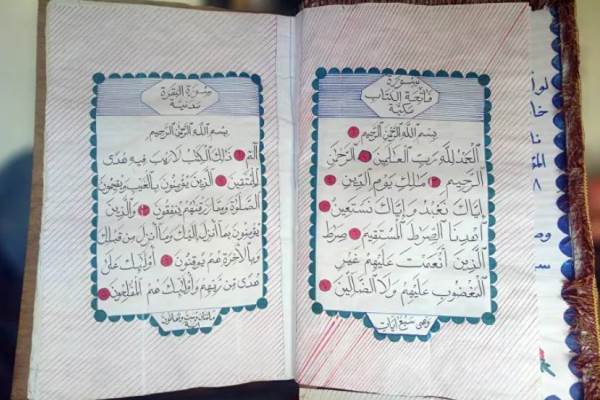 سورة
فاتحة الكتاب
مكية
بسم الله الرحمن الرحيم ١
الحمد لله رب العالمين ٢ الرحمن
الرحيم ٣ مالك يوم الدين ٤
إياك نعبد وإياك نستعين ٥
اهدنا الصراط المستقيم ٦ صرط
الذين أنعمت عليهم غير
المغضوب عليهم ولا الضالين ٧
وهي سبع آيات
سورة البقرة
مدنية
بسم الله الرحمن الرحيم
الم ١ ذلك الكتب لا ريب فيه هدى
للمتقين ٢ الذين يؤمنون بالغيب ويقيمون
الصلوة ومما رزقنهم ينفقون ٣ والذين
يؤمنون بما أنزل إليك وما أنزل من قبلك
وبالآخرة هم يوقنون ٤ أولئك على
هدى من ربهم وأولئك هم المفلحون ٥
مائتان وست وثمانون
آية